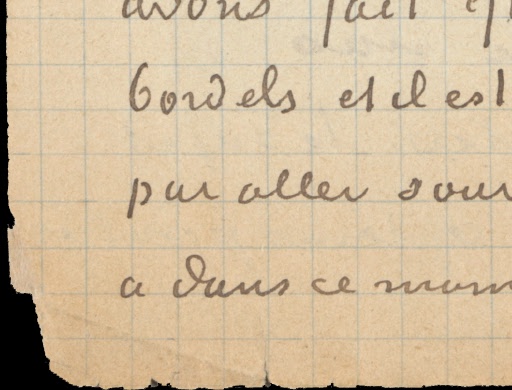 avons fait
bordels et il est
par aller sour
a dans ce mom